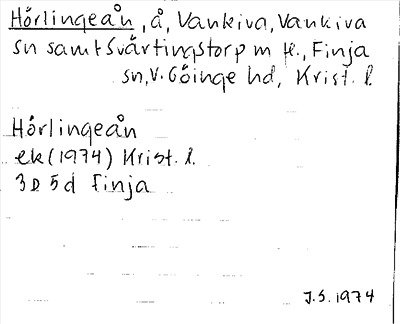 Hörlingeån, å, Vankiva, Vankiva
sn samt Svärtingstorp m fl., Finja
sn, V. Göinge hd, Krist. l.
Hörlingeån
ek (1974) Krist. l.
3D 5d Finja
J.S. 1974